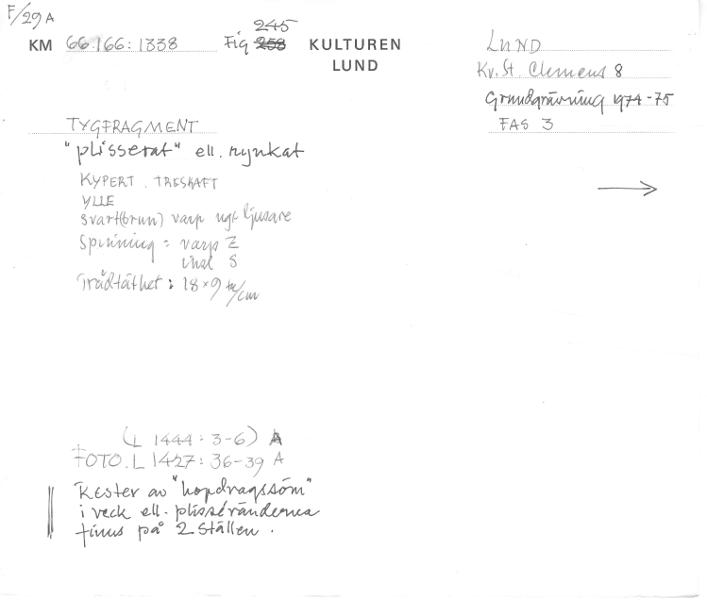 F/29A
245
KM 66.166:1338 Fig 258 KULTUREN
LUND
LUND
Kv. St. Clemens 8
Grundgrävning 1974-75
FAS 3
TYGFRAGMENT
"plisserat" ell. rynkat
KYPERT. TRESKAFT
YLLE
Svart(brun) varp ngt ljusare
Spinning = varp Z
insl S
Trådtäthet: 18×9 tr/cm
(L 1444:3-6) A
FOTO. L 1427:36-39 A
Rester av "hopdragssöm"
i veck ell. plisséränderna
finns på 2 ställen.